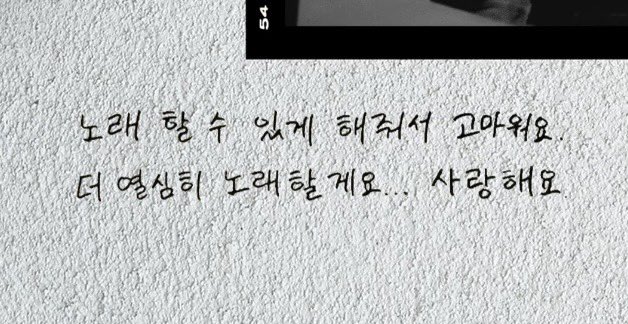 54
노래 할 수 있게 해줘서 고마워요.
더 열심히 노래할게요... 사랑해요